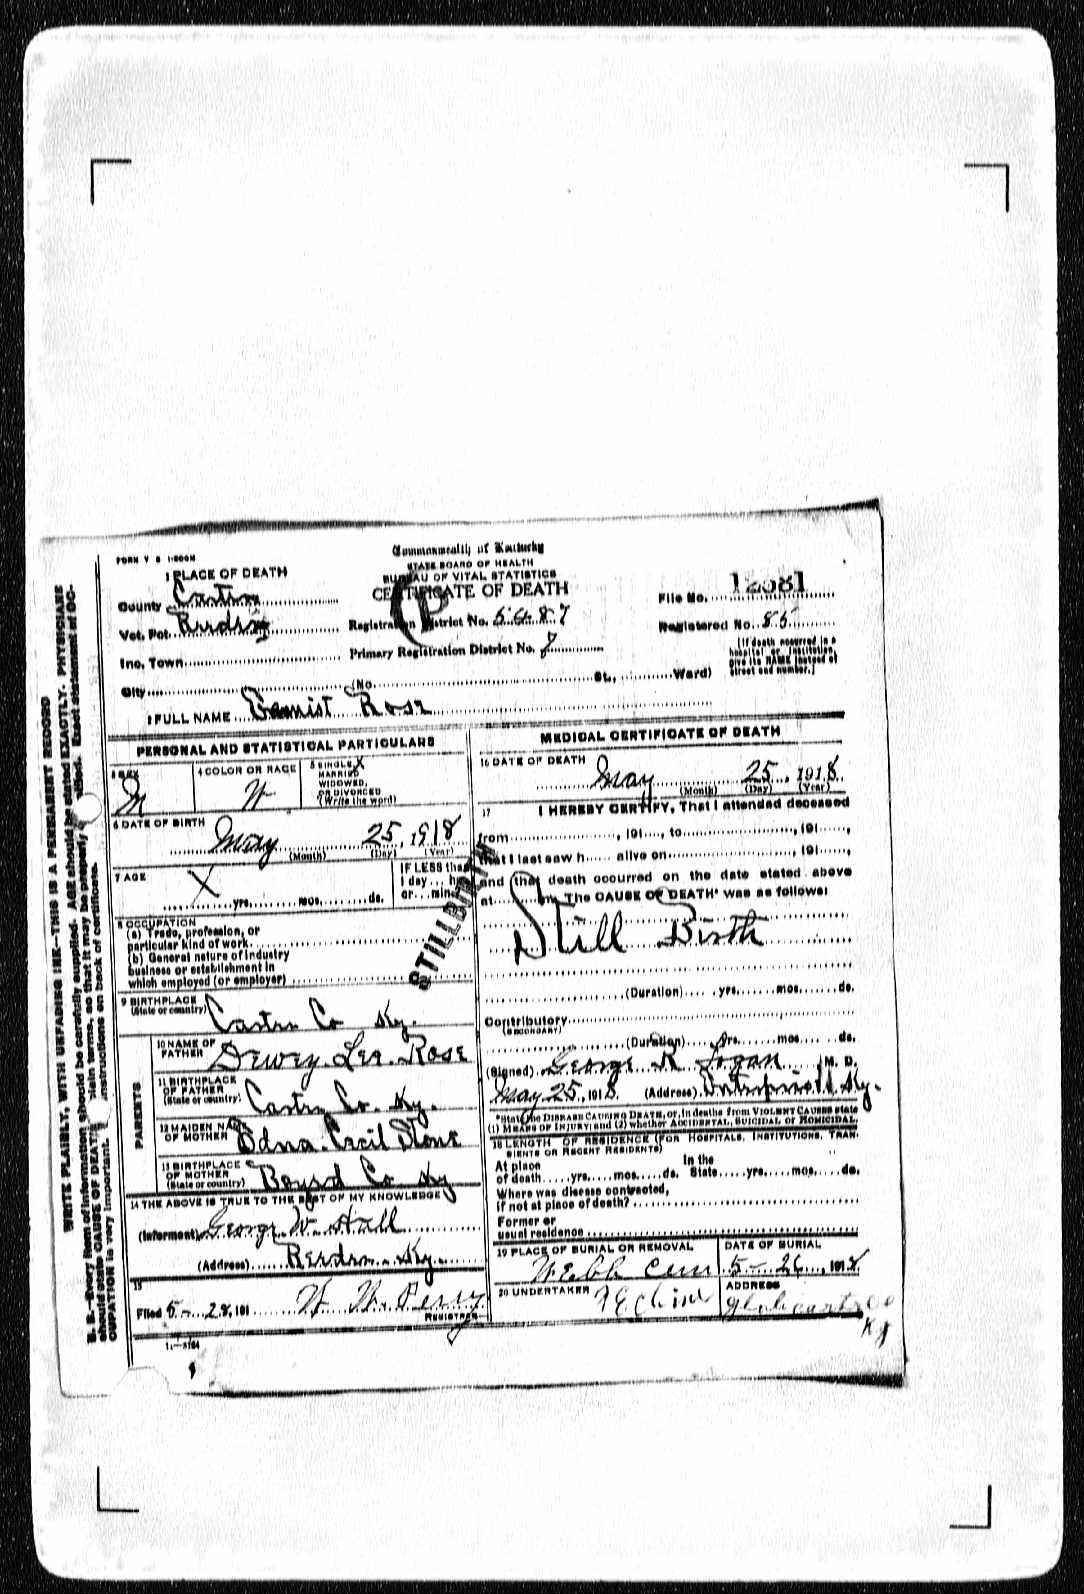 FORM V S 1-500M
Commonwealth of Kentucky
STATE BOARD OF HEALTH
BUREAU OF VITAL STATISTICS
CERTIFICATE OF DEATH
1 PLACE OF DEATH
County Carter
Vot. Pct.
Inc. Town
City (No. St., Ward)
Registration District No. 5487
Primary Registration District No. 7
File No. 12581
Registered No. 85
[If death occurred in a hospital or institution, give its NAME instead of street and number.]
2 FULL NAME Rose
PERSONAL AND STATISTICAL PARTICULARS
3 SEX M
4 COLOR OR RACE W
5 SINGLE X
MARRIED
WIDOWED,
OR DIVORCED
(Write the word)
6 DATE OF BIRTH
May 25, 1918
(Month) (Day) (Year)
7 AGE X
yrs. mos. ds.
IF LESS than
1 day hrs
or min
8 OCCUPATION
(a) Trade, profession, or
particular kind of work
(b) General nature of industry
business or establishment in
which employed (or employer)
STILLBIRTH
9 BIRTHPLACE
(State or country) Carter Co Ky.
PARENTS
10 NAME OF
FATHER Dewey Lee Rose
11 BIRTHPLACE
OF FATHER
(State or country) Carter Co. Ky.
12 MAIDEN NAME
OF MOTHER Edna Cecil Stone
13 BIRTHPLACE
OF MOTHER
(State or country) Boyd Co Ky
14 THE ABOVE IS TRUE TO THE BEST OF MY KNOWLEDGE
(Informant) George W. Hall
(Address) Ky.
15
Filed 5-28, 191 W. Perry
REGISTRAR
11-3184
MEDICAL CERTIFICATE OF DEATH
16 DATE OF DEATH
May 25, 1918
(Month) (Day) (Year)
17 I HEREBY CERTIFY, That I attended deceased
from , 191 , to , 191 ,
that I last saw h alive on , 191 ,
and that death occurred on the date stated above
at m. The CAUSE OF DEATH* was as follows:
Still Birth
(Duration) yrs. mos. ds.
Contributory
(SECONDARY)
(Duration) yrs. mos. ds.
(Signed) George R Logan M. D.
May 25, 1918. (Address) Ky.
*State the DISEASE CAUSING DEATH, or, in deaths from VIOLENT CAUSES state
(1) MEANS OF INJURY; and (2) whether ACCIDENTAL, SUICIDAL or HOMICIDAL
18 LENGTH OF RESIDENCE (FOR HOSPITALS, INSTITUTIONS, TRAN-
SIENTS OR RECENT RESIDENTS)
At place In the
of death yrs. mos. ds. State yrs. mos. ds.
Where was disease contracted,
if not at place of death?
Former or
usual residence
19 PLACE OF BURIAL OR REMOVAL DATE OF BURIAL
Webb Cem 5-26, 1918
20 UNDERTAKER ADDRESS
Ky
WRITE PLAINLY, WITH UNFADING INK—THIS IS A PERMANENT RECORD
N. B.—Every item of information should be carefully supplied. AGE should be stated EXACTLY. PHYSICIANS
should state CAUSE OF DEATH in plain terms, so that it may be properly classified. Exact statement of OC-
CUPATION is very important. instructions on back of certificate.